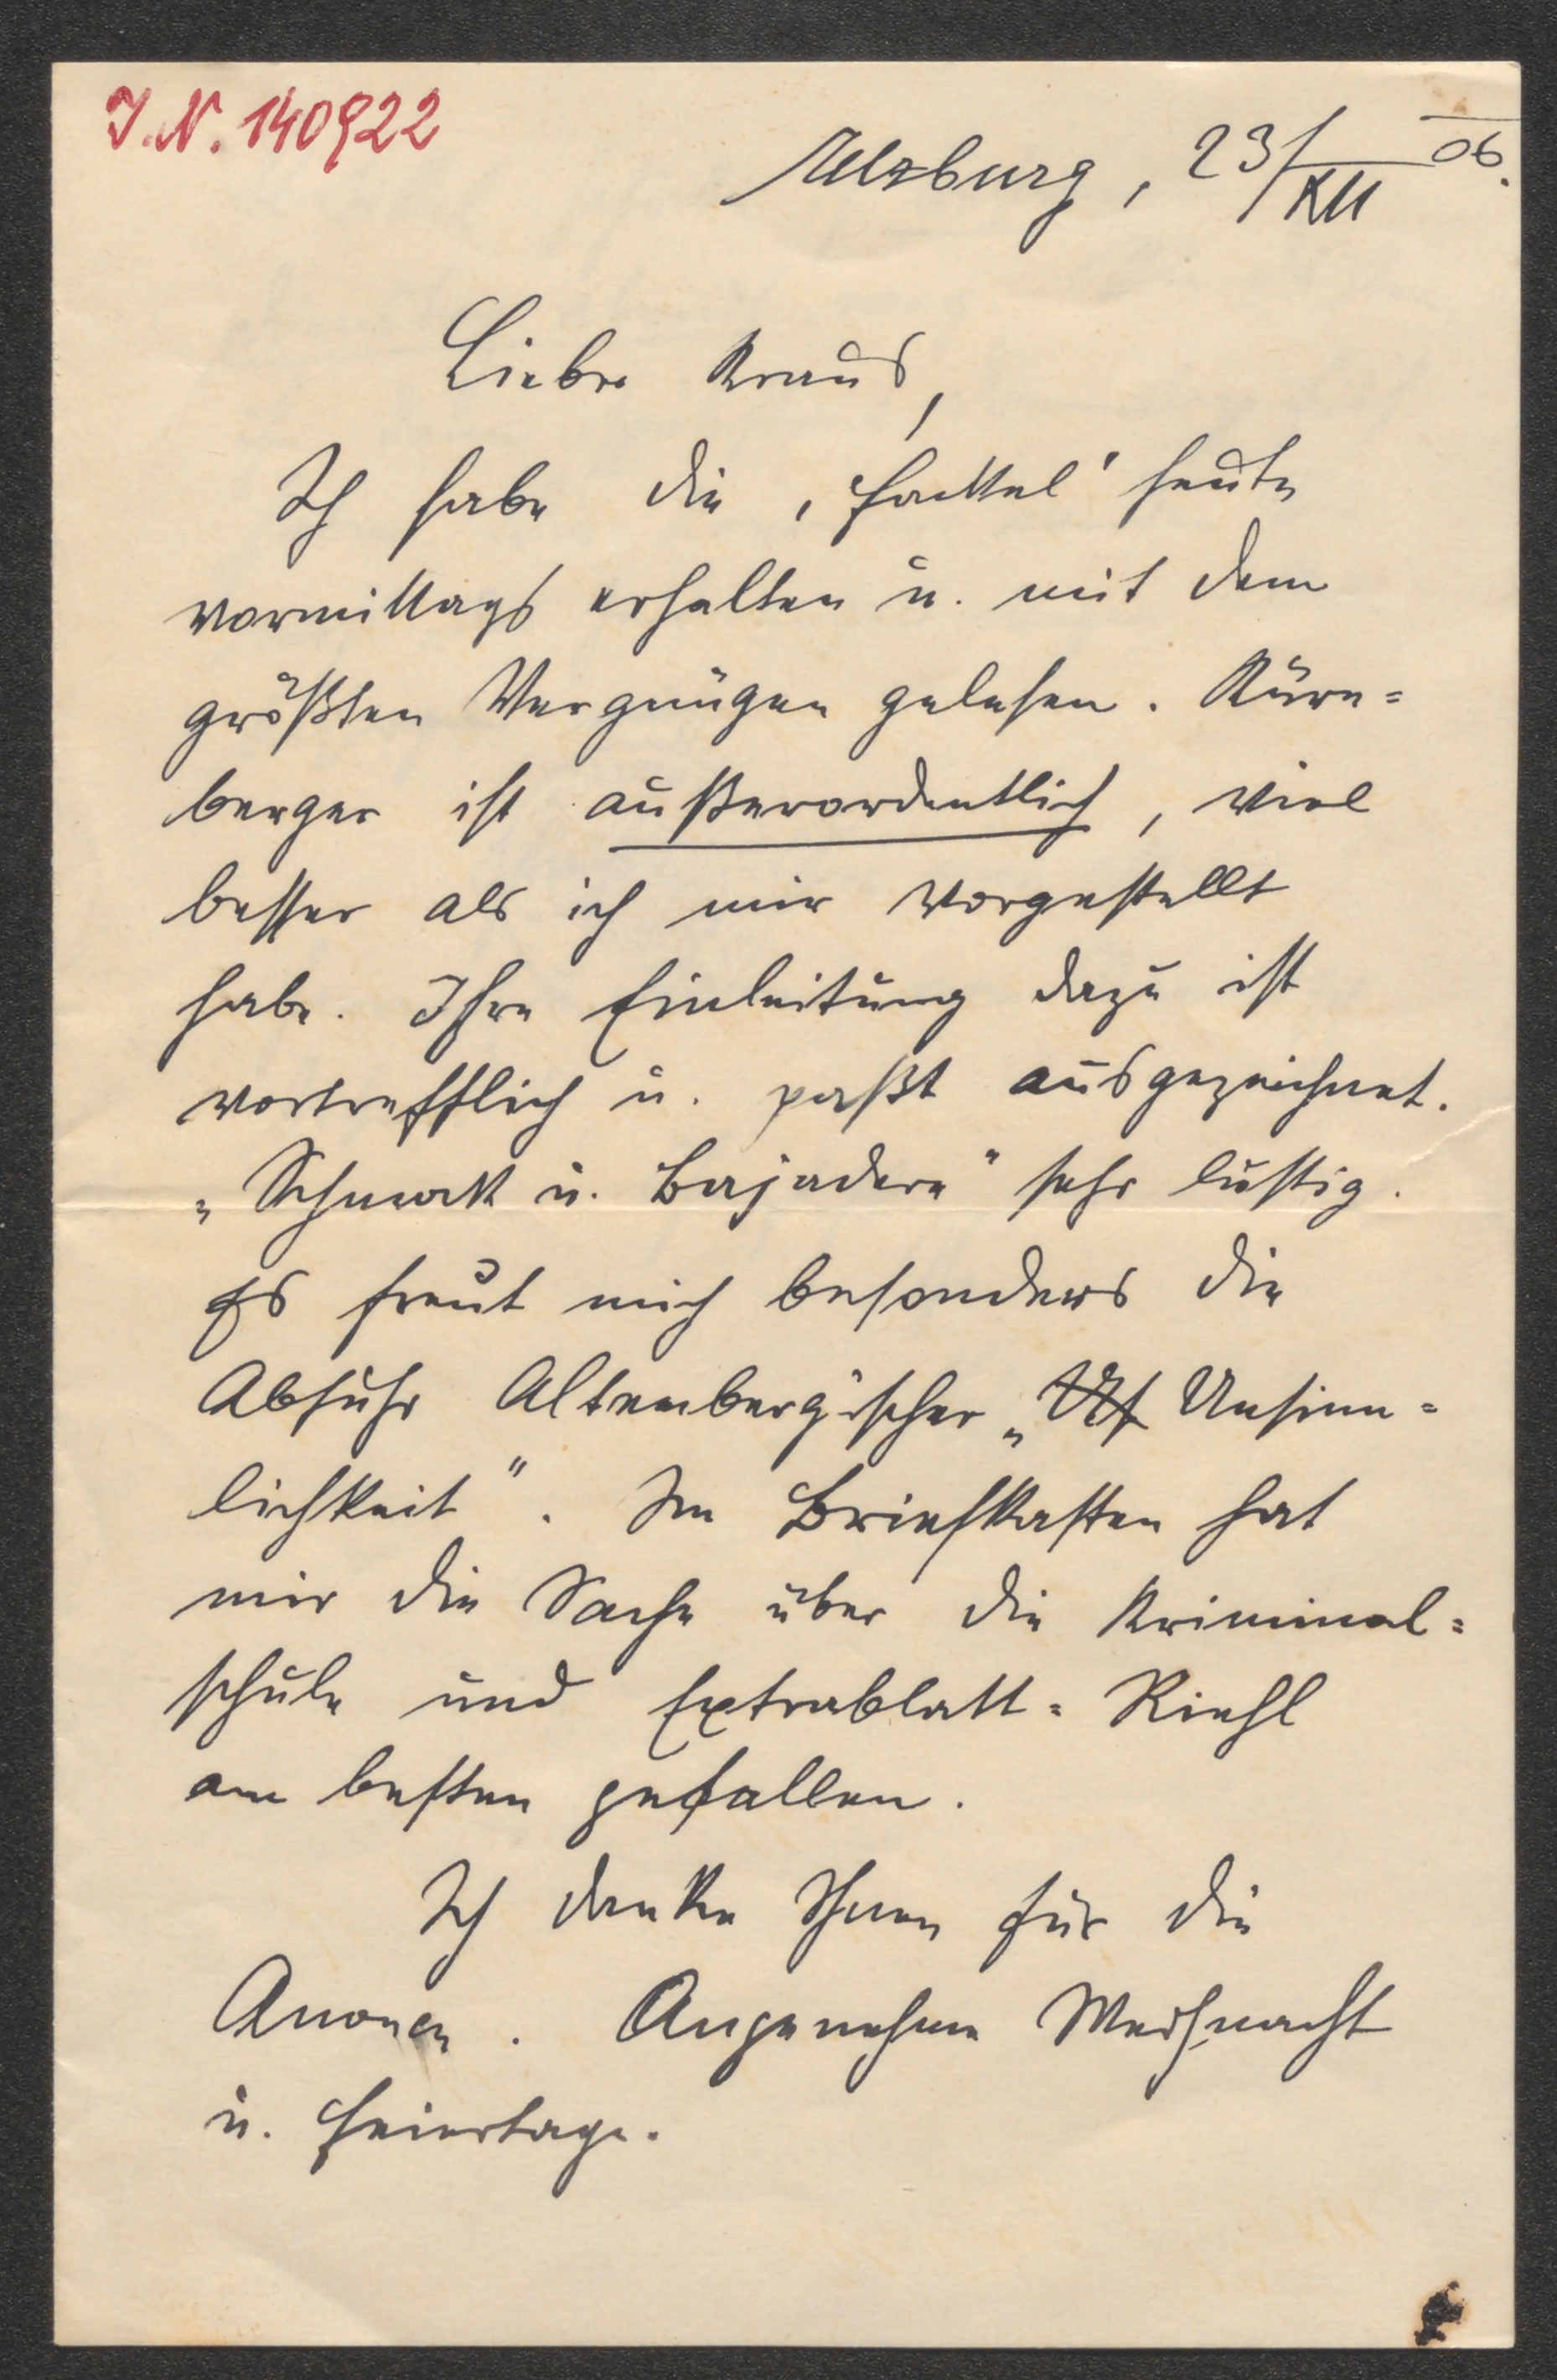 I.N. 140922
Salzburg, 23/XII 06.
Lieber Kraus,
Ich habe die ‚Fackel' heute
vormittags erhalten u. mit dem
größten Vergnügen gelesen. Kürn=
berger ist außerordentlich, viel
besser als ich mir vorgestellt
habe. Ihre Einleitung dazu ist
vortrefflich u. paßt ausgezeichnet.
„Schmock u. Bajadere" sehr lustig.
Es freut mich besonders die
Abfuhr Altenberg'scher „Unsinn=
lichkeit". Im Briefkasten hat
mir die Sache über die Kriminal=
schule und Extrablatt=Riehl
am besten gefallen.
Ich danke Ihnen für die
Annonce. Angenehme Weihnacht
u. Feiertage.